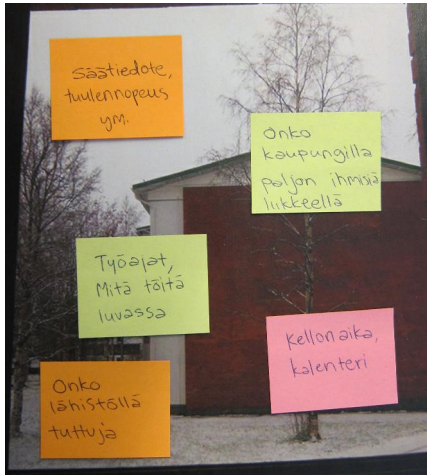 säätiedote,
tuulennopeus
ym.
Onko
kaupungilla
paljon ihmisiä
liikkeellä
Työajat,
Mitä töitä
luvassa
Kellonaika,
kalenteri
Onko
lähistöllä
tuttuja